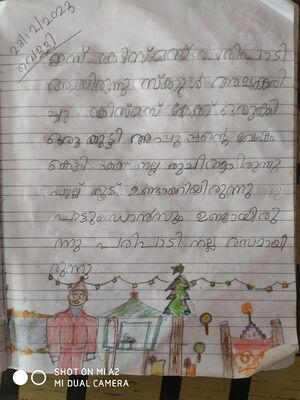 23/12/2023
വെള്ളി
ഇന്ന് ക്രിസ്മസ് പരിപാടി
ആയിരുന്നു സ്കൂൾ അലങ്കരി
ച്ചു ക്രിസ്മസ് കേക്ക് ഒരുക്കി
ഒരു കുട്ടി അപ്പൂപ്പന്റെ വേഷം
കെട്ടി കേക്ക് നല്ല രുചിയായിരുന്നു
പുല്ക്കൂട് ഉണ്ടാക്കിയിരുന്നു
പാട്ടും ഡാൻസും ഉണ്ടായിരു
ന്നു പരിപാടി നല്ല രസമായി
രുന്നു
SHOT ON MI A2
MI DUAL CAMERA